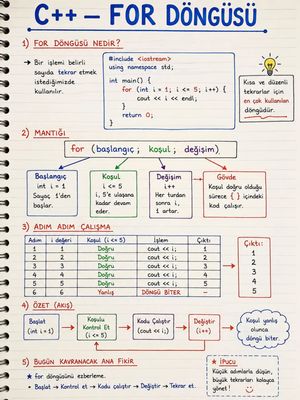 C++ – FOR DÖNGÜSÜ
1) FOR DÖNGÜSÜ NEDİR?
→ Bir işlemi belirli
sayıda tekrar etmek
istediğimizde
kullanılır.
#include <iostream>
using namespace std;
int main() {
for (int i = 1; i <= 5; i++) {
cout << i << endl;
}
return 0;
}
Kısa ve düzenli
tekrarlar için
en çok kullanılan
döngüdür.
2) MANTIĞI
for (başlangıç ; koşul ; değişim)
Başlangıç
int i = 1
Sayaç 1'den
başlar.
Koşul
i <= 5
i, 5'e ulaşana
kadar devam
eder.
Değişim
i++
Her turdan
sonra i,
1 artar.
Gövde
Koşul doğru olduğu
sürece { } içindeki
kod çalışır.
3) ADIM ADIM ÇALIŞMA
Adım i değeri Koşul (i <= 5) İşlem Çıktı
1 1 Doğru cout << i; 1
2 2 Doğru cout << i; 2
3 3 Doğru cout << i; 3
4 4 Doğru cout << i; 4
5 5 Doğru cout << i; 5
6 6 Yanlış DÖNGÜ BİTER –
Çıktı:
1
2
3
4
5
4) ÖZET (AKIŞ)
Başlat
(int i=1)
Koşulu
Kontrol Et
(i <= 5)
Kodu Çalıştır
(cout << i;)
Değiştir
(i++)
Koşul yanlış
olunca
döngü biter.
5) BUGÜN KAVRANACAK ANA FİKİR
★ for döngüsünü ezberleme.
• Başlat → Kontrol et → Kodu çalıştır → Değiştir → Tekrar et.
★ İPUCU
Küçük adımlarla düşün,
büyük tekrarları kolayca
yönet!